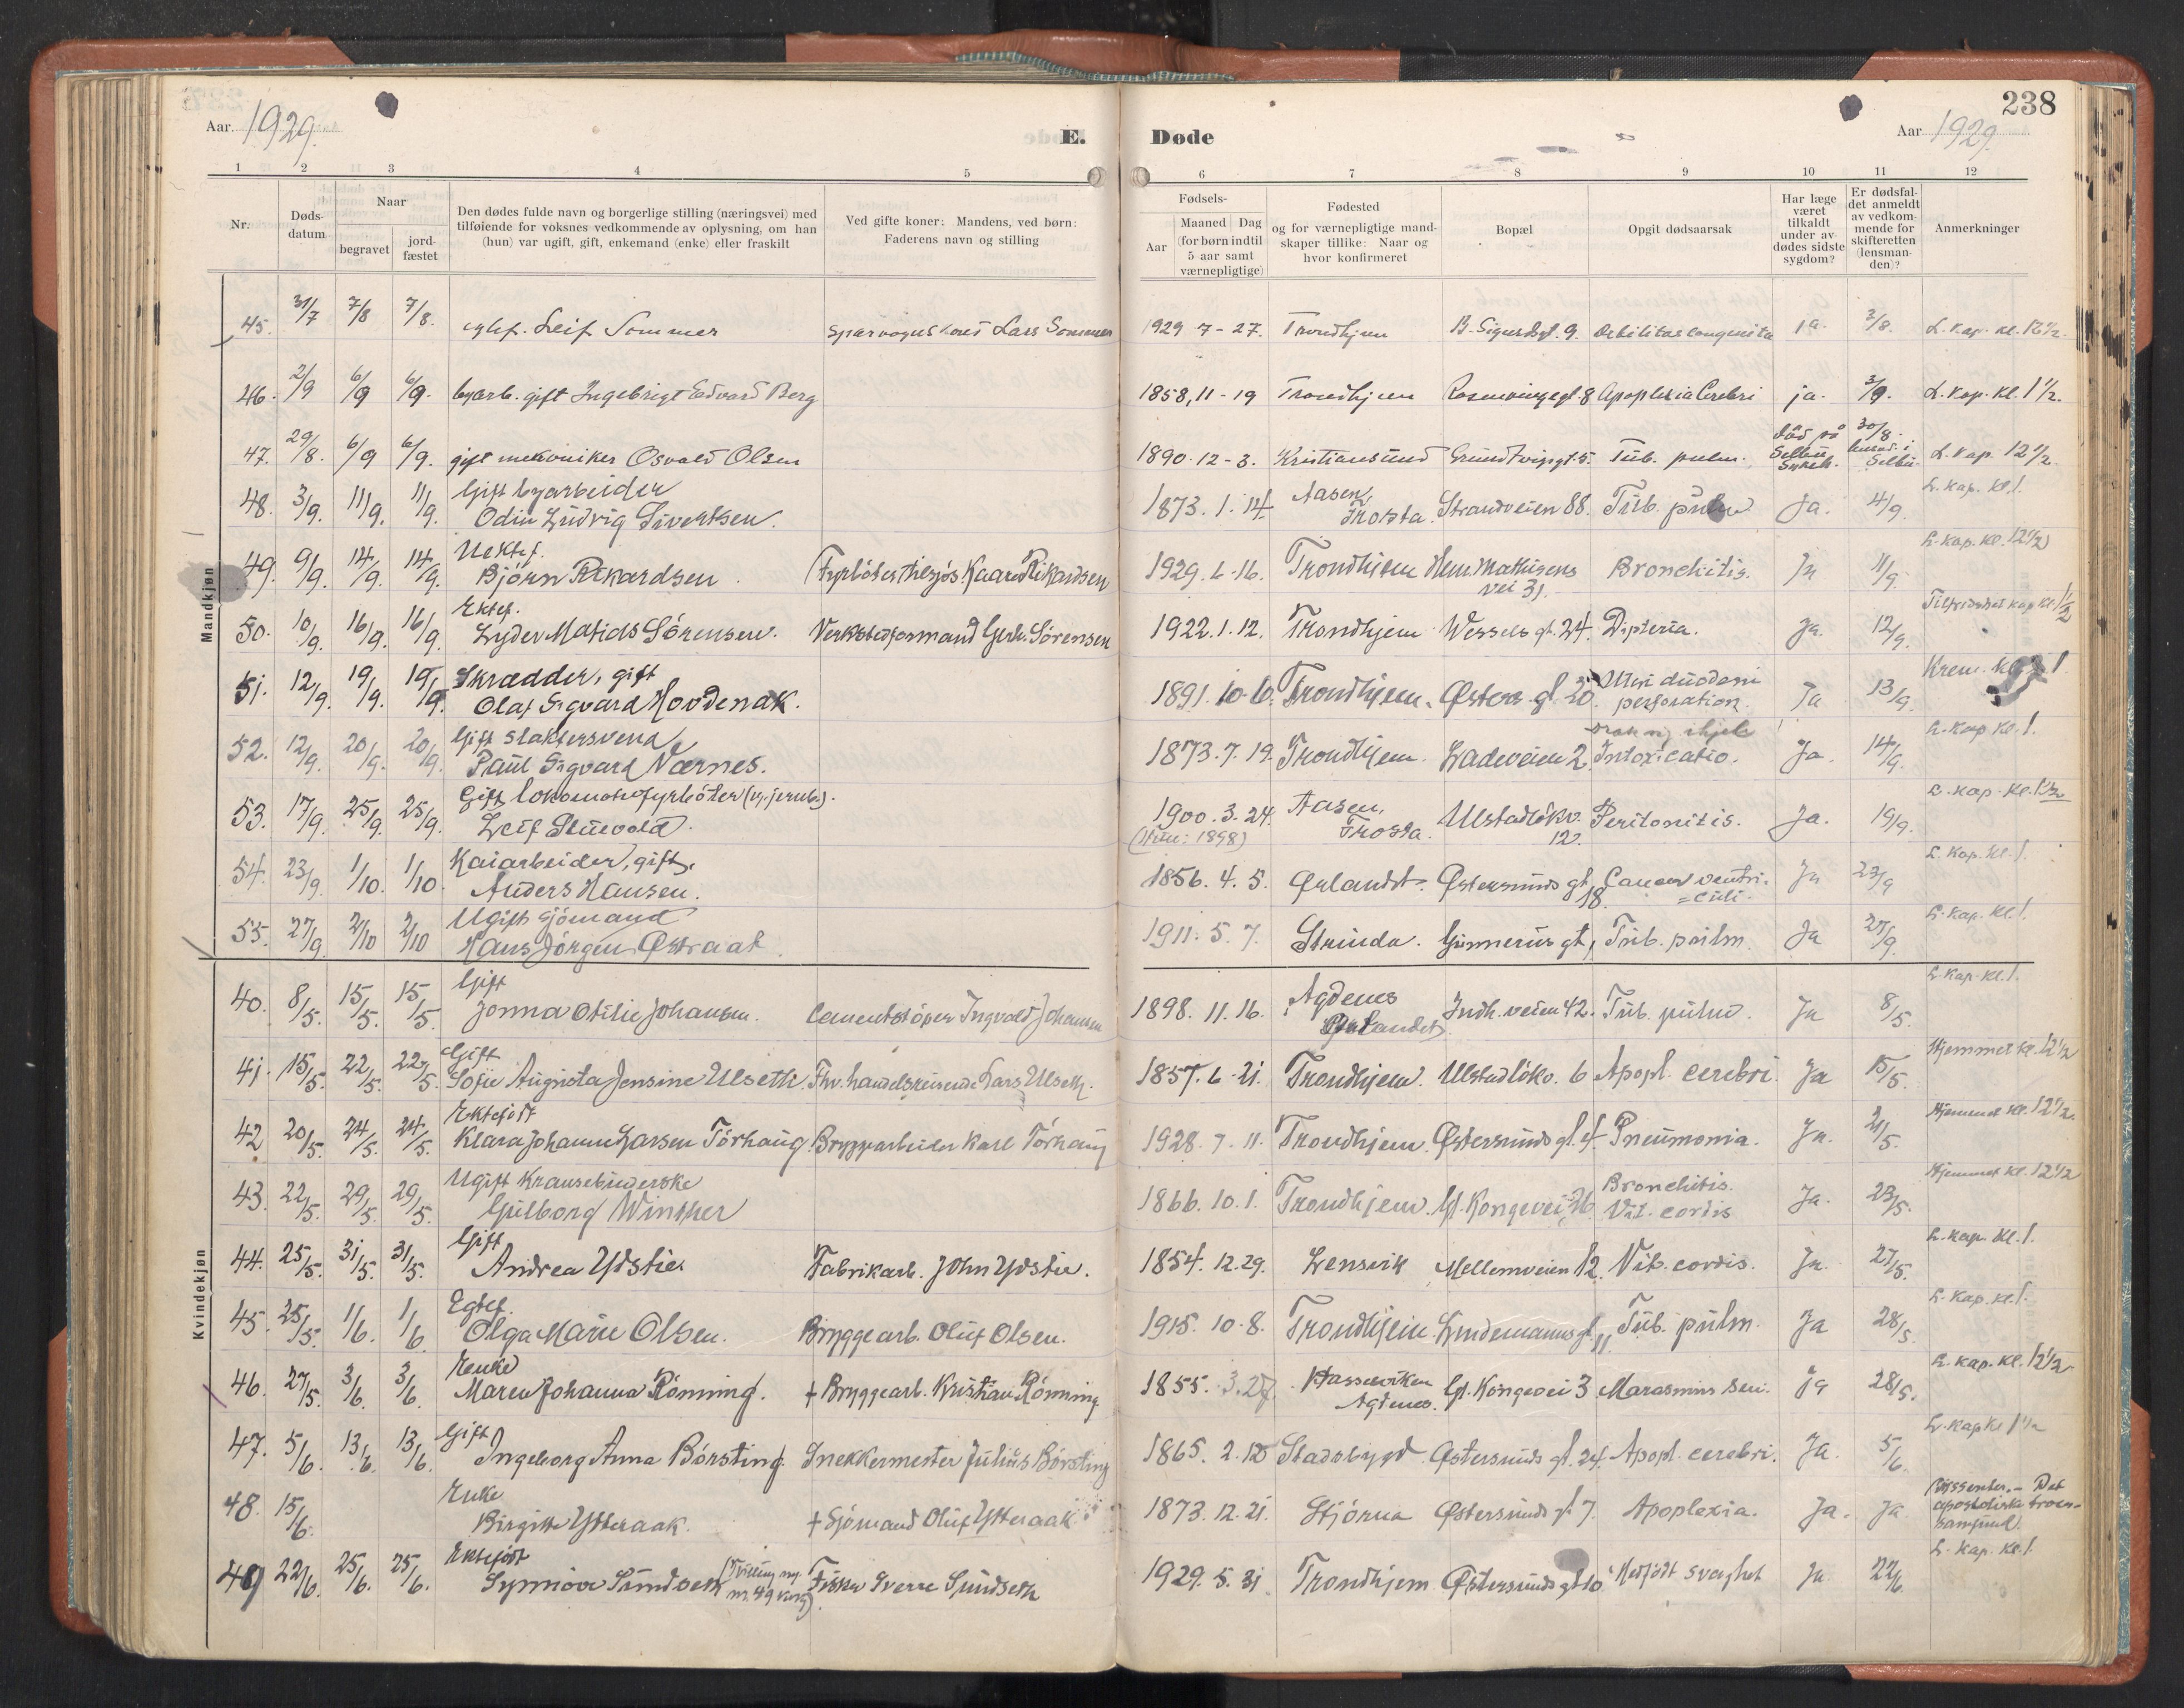 238
Aar 1929. E. Døde Aar 1929.
1 2 3 4 5 6 7 8 9 10 11 12
Nr.
Døds-
datum
Naar
begravet
jord-
fæstet
Den dødes fulde navn og borgerlige stilling (næringsvei) med
tilføiende for voksnes vedkommende av oplysning, om han
(hun) var ugift, gift, enkemand (enke) eller fraskilt
Ved gifte koner: Mandens, ved børn:
Faderens navn og stilling
Fødsels-
Aar
Maaned Dag
(for børn indtil
5 aar samt
værnepligtige)
Fødested
og for værnepligtige mand-
skaper tillike: Naar og
hvor konfirmeret
Bopæl
Opgit dødsaarsak
Har læge
været
tilkaldt
under av-
dødes sidste
sygdom?
Er dødsfal-
det anmeldt
av vedkom-
mende for
skifteretten
(lensman-
den)?
Anmerkninger
Mandkjøn
45. 31/7 7/8 7/8. Leif Sommer Lars Sommer 1929 7-27. Trondhjem B. Sigurdsgt. 9. Debilitas congenita ja. 3/8. L. kap. kl. 12 1/2.
46. 2/9 6/9 6/9. byarb. gift Ingebrigt Edvard Berg 1858, 11-19 Trondhjem Rosenvingegt. 8 Apoplexia Cerebri ja. 3/9. L. kap. kl. 1 1/2.
47. 29/8. 6/9 6/9. gift mekaniker Osvald Olsen 1890. 12-3. Kristiansund Grundtvigsgt. 5. Tub. pulm. død på Selbu Sykeh. 30/8. Selbu. L. kap. 12 1/2.
48. 3/9. 11/9. 11/9. Gift byarbeider
Odin Ludvig Sivertsen. 1873. 1. 14. Aasen, Frosta. Strandveien 88. Tub. pulm. Ja. 4/9. L. kap. kl. 1.
49. 9/9. 14/9. 14/9. Uektef.
Björn Rikardsen. Fyrböter tilsjös Kaare Rikardsen 1929. 6. 16. Trondhjem Hen. Mathisens vei 31. Bronchitis. Ja 11/9. L. kap. kl. 12 1/2
50. 10/9. 16/9. 16/9. Ektef.
Lyder Matids Sörensen. Verkstedformand Gerh. Sörensen 1922. 1. 12. Trondhjem Wessels gt. 24. Dipteria. Ja. 12/9. Tilfredshet kap kl. 1 1/2
51. 12/9. 19/9. 19/9. Skrædder, gift
Olaf Sigvard Hovdenak. 1891. 10. 6. Trondhjem. Østers. gt. 20. Ulsi duodeni perforation. Ja 13/9. Krem. kl. 1
52. 12/9. 20/9. 20/9. Gift slaktersvend
Paul Sigvard Nærnes. 1873. 7. 19. Trondhjem. Ladeveien 2. Intoxicatio. Ja. 14/9. L. kap kl. 1.
53. 17/9. 25/9. 25/9. Gift lokomotivfyrböter (v. jernb.).
Leif Stuevold. 1900. 3. 24. Aasen, Frosta. (: 1898) Ulstadlökv. 12. Peritonitis. Ja. 19/9. L. kap. kl. 1 1/2
54. 23/9. 1/10. 1/10. Kaiarbeider, gift.
Anders Hansen. 1856. 4. 5. Ørlandet. Østersunds gt. 18. Cancer ventri-
=culi. Ja 23/9 L. kap. kl. 1.
55. 27/9. 2/10 2/10 Ugift sjömand
Hans Jörgen Østraat. 1911. 5. 7. Strinda. Gunnerus gt, Tub. pulm. Ja 27/9. L. kap. kl. 1.
Kvindekjøn
40. 8/5. 15/5. 15/5. Gift
Jonna Otilie Johansen. Cementstöper Ingvald Johansen 1898. 11. 16. Agdenes Ørlandet. Indh. veien 42. Tub. pulm. Ja 8/5. L. kap. kl. 1.
41. 15/5. 22/5. 22/5. Gift
Sofie Augusta Jensine Ulseth Fhv. handelsreisende Lars Ulseth. 1857. 6. 21. Trondhjem. Ulstadlökv. 6 Apopl. cerebri. Ja 15/5. Hjemmet kl. 12 1/2
42 20/5. 24/5. 24/5. Ektefödt
Klara Johanne Larsen Törhaug. Bryggarbeider Karl Törhaug 1928. 7. 11. Trondhjem. Østersunds gt. Pneumonia. Ja. 21/5. Hjemmet kl. 12 1/2.
43. 22/5. 29/5. 29/5. Ugift Kransebinderske
Gulborg Winther 1866. 10. 1. Trondhjem. Gl. Kongevei, 26 Bronchitis. Vit. cordis Ja. 23/5. Hjemmet kl. 12 1/2
44. 25/5. 31/5. 31/5. Gift
Andrea Ydstie. Fabrikarb. John Ydstie. 1854. 12. 29. Lensvik Mellemveien 12. Vit. cordis. Ja. 27/5. L. kap. kl. 1.
45. 25/5. 1/6. 1/6 Egtef.
Olga Marie Olsen. Bryggearb. Oluf Olsen. 1915. 10. 8. Trondhjem Lindemanns gt. 11 Tub. pulm. Ja 28/5. L. kap. kl. 1.
46. 27/5. 3/6. 3/6. Enke
Maren Johanna Rönning. + Bryggearb. Kristian Rönning. 1855. 3. 27. Hasselviken Agdenes. Gl. Kongevei 3 Marasmus sen. Ja 28/5. L. kap. kl. 12 1/2
47. 5/6. 13/6. 13/6. Gift
Ingeborg Anna Börsting. Snekkermester Julius Börsting 1865. 2. 12 Stadsbygd Østersunds gt. 24. Apopl. cerebri. Ja. 5/6. L. kap kl 1 1/2
48. 15/6. Enke
Birgitte Ytteraak. + Sjömand Oluf Ytteraak 1873. 12. 21. Stjörna Østersunds gt 7. Apoplexia. Ja. Ja Dissenter. - Det apostoliske troes-
samfund.
49 22/6. 25/6. 25/6. Ektefödt
Synnöve Sundseth (Tvilling m. nr. 49) Fisker Sverre Sundseth 1929. 5. 31 Trondhjem Østersunds gt. 10 Medfödt svaghet Ja 22/6. L. kap. kl. 1.